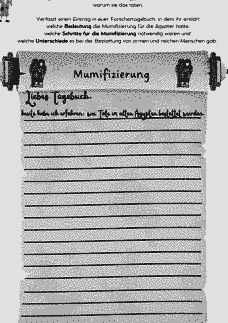 warum sie das taten.
Verfasst einen Eintrag in euer Forschertagebuch, in dem ihr erklärt
welche Bedeutung die Mumifizierung für die Ägypter hatte,
welche Schritte für die Mumifizierung notwendig waren und
welche Unterschiede es bei der Bestattung von armen und reichen Menschen gab.
Mumifizierung
Liebes Tagebuch,
heute habe ich erfahren, wie Tote im alten Ägypten bestattet wurden.